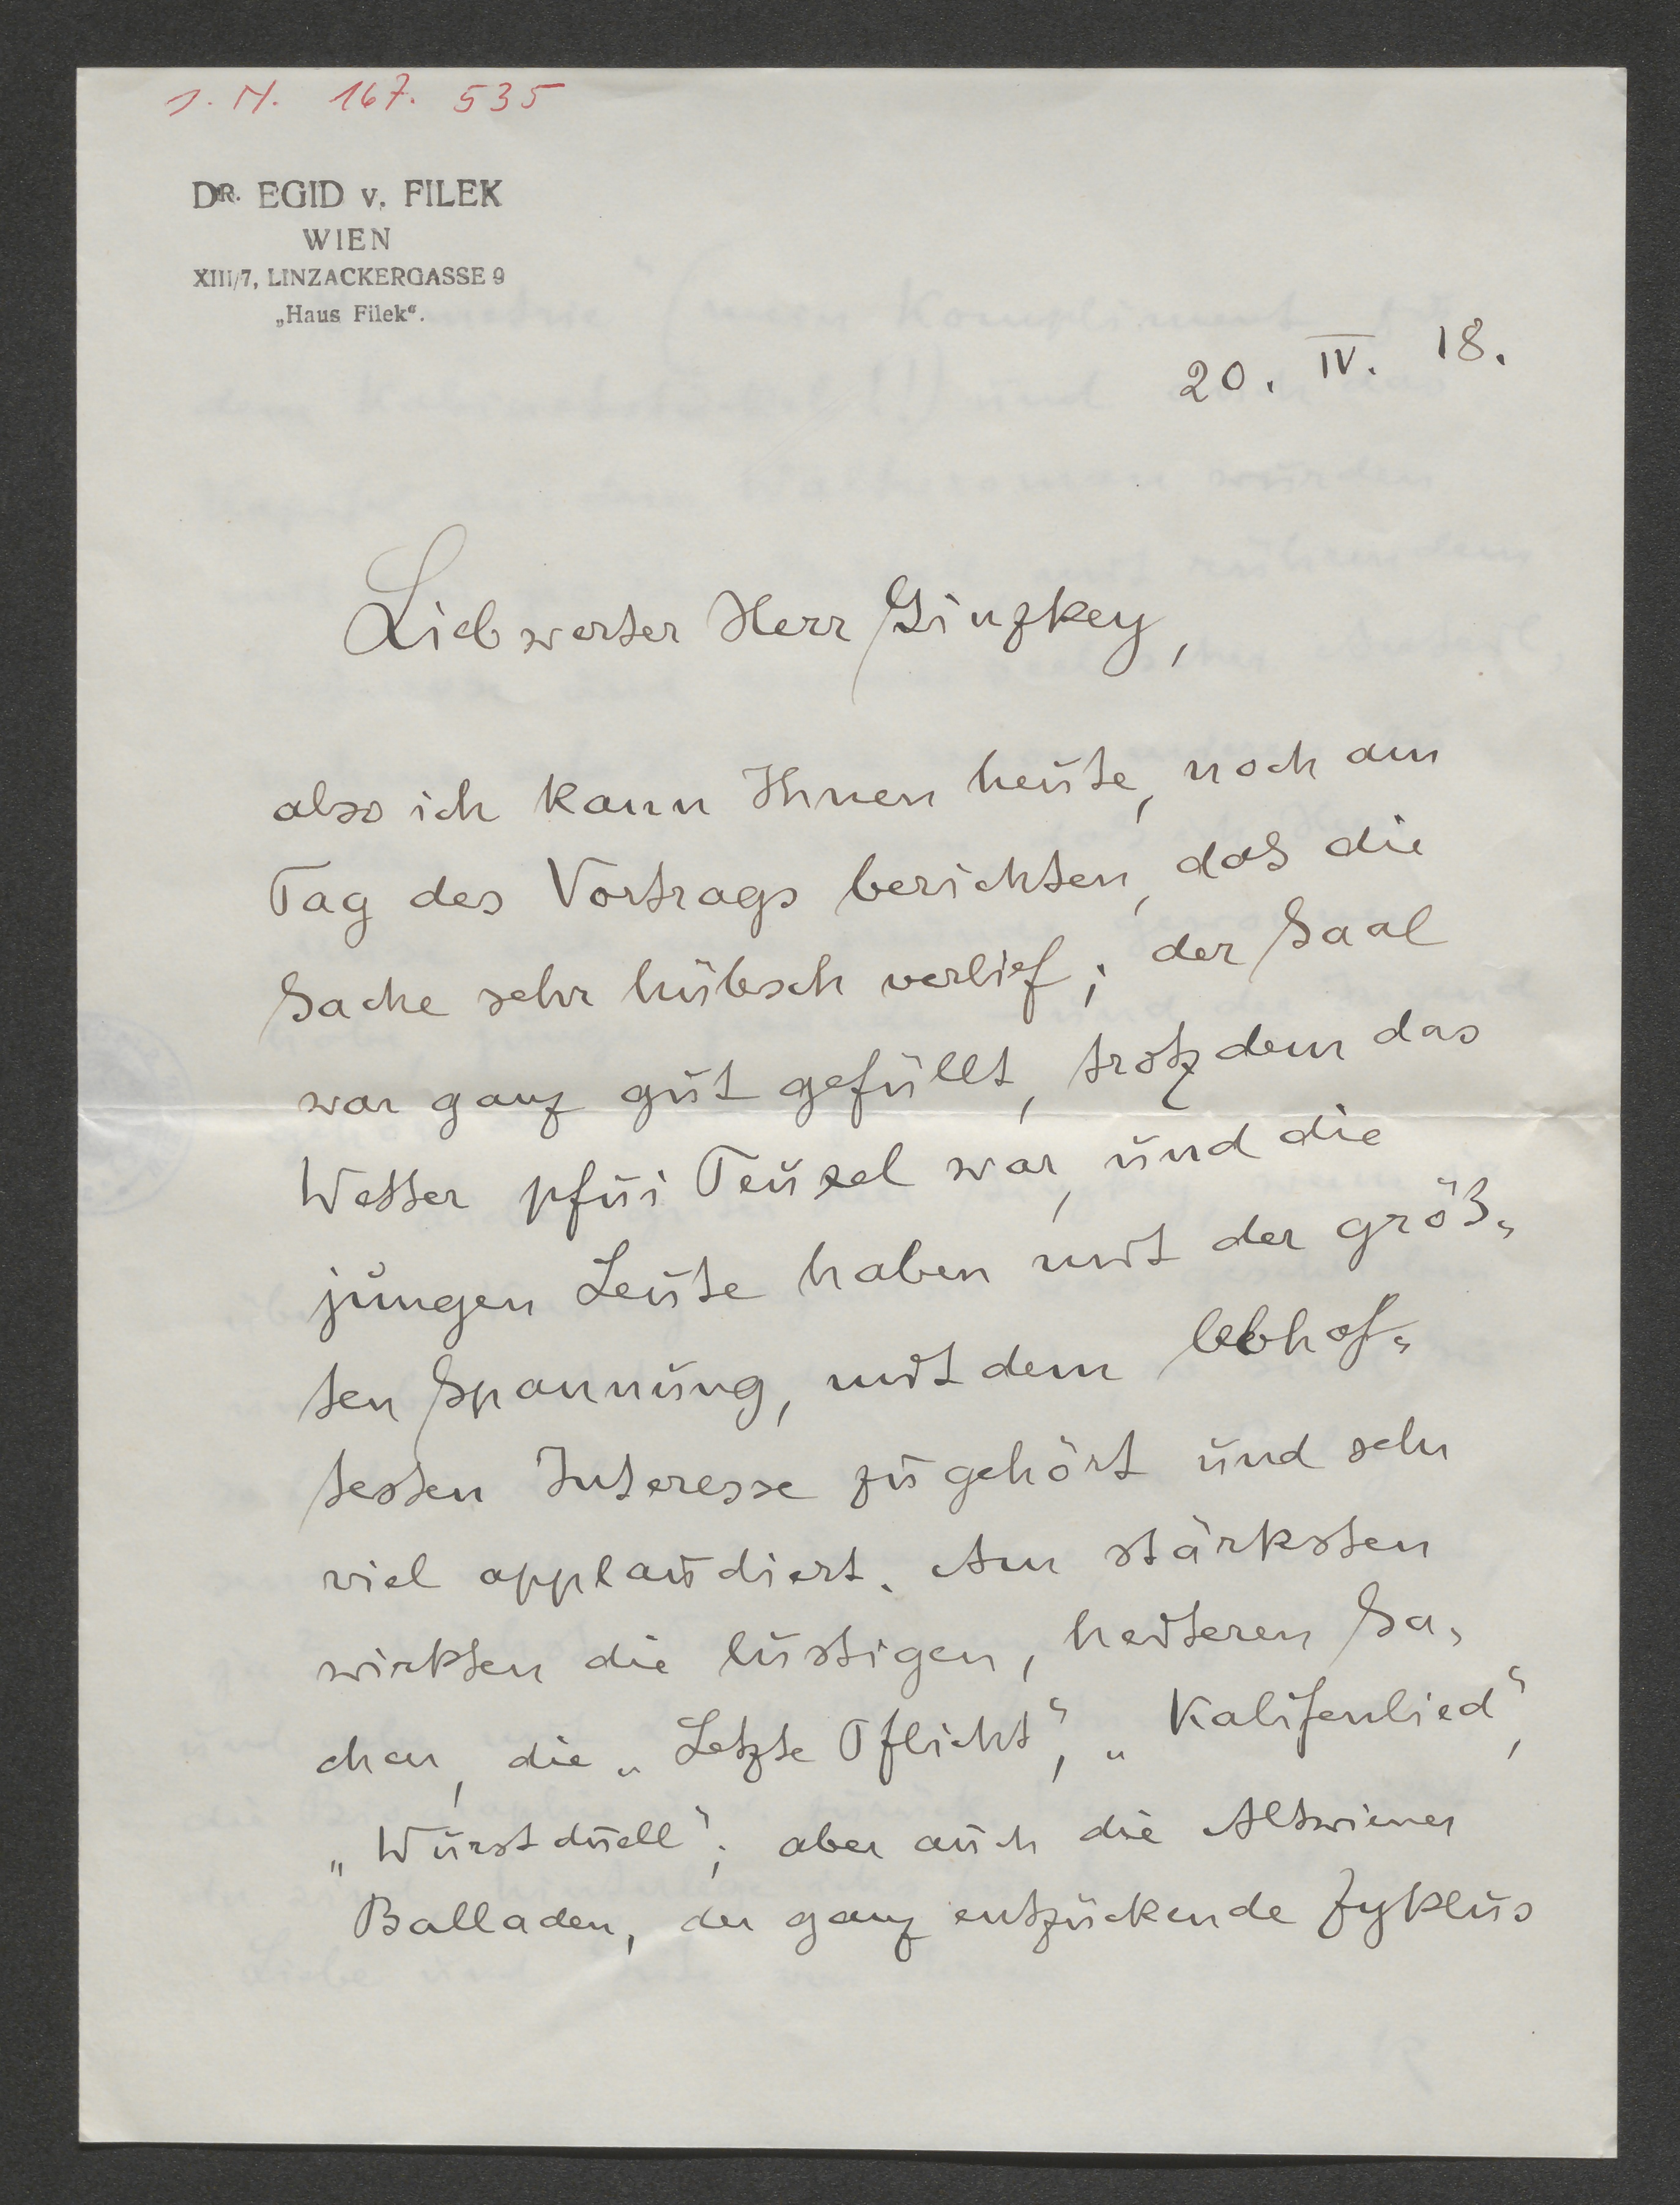 J. N. 167. 535
DR. EGID v. FILEK
WIEN
XIII/7, LINZACKERGASSE 9
„Haus Filek“.
20. IV. 18.
Liebwerter Herr Ginzkey,
also ich kann Ihnen heute, noch am
Tag des Vortrags berichten, daß die
Sache sehr hübsch verlief; der Saal
war ganz gut gefüllt, trotzdem das
Wetter pfui Teuxel war, und die
jungen Leute haben mit der größ„
ten Spannung, mit dem lebhaf„
testen Interesse zugehört und sehr
viel applaudiert. Am stärksten
wirkten die lustigen, heiteren Sa„
chen, die „Letzte Pflicht“, „Kalifenlied“,
„Wurstduell“; aber auch die Altwiener
Balladen, der ganz entzückende Zyklus